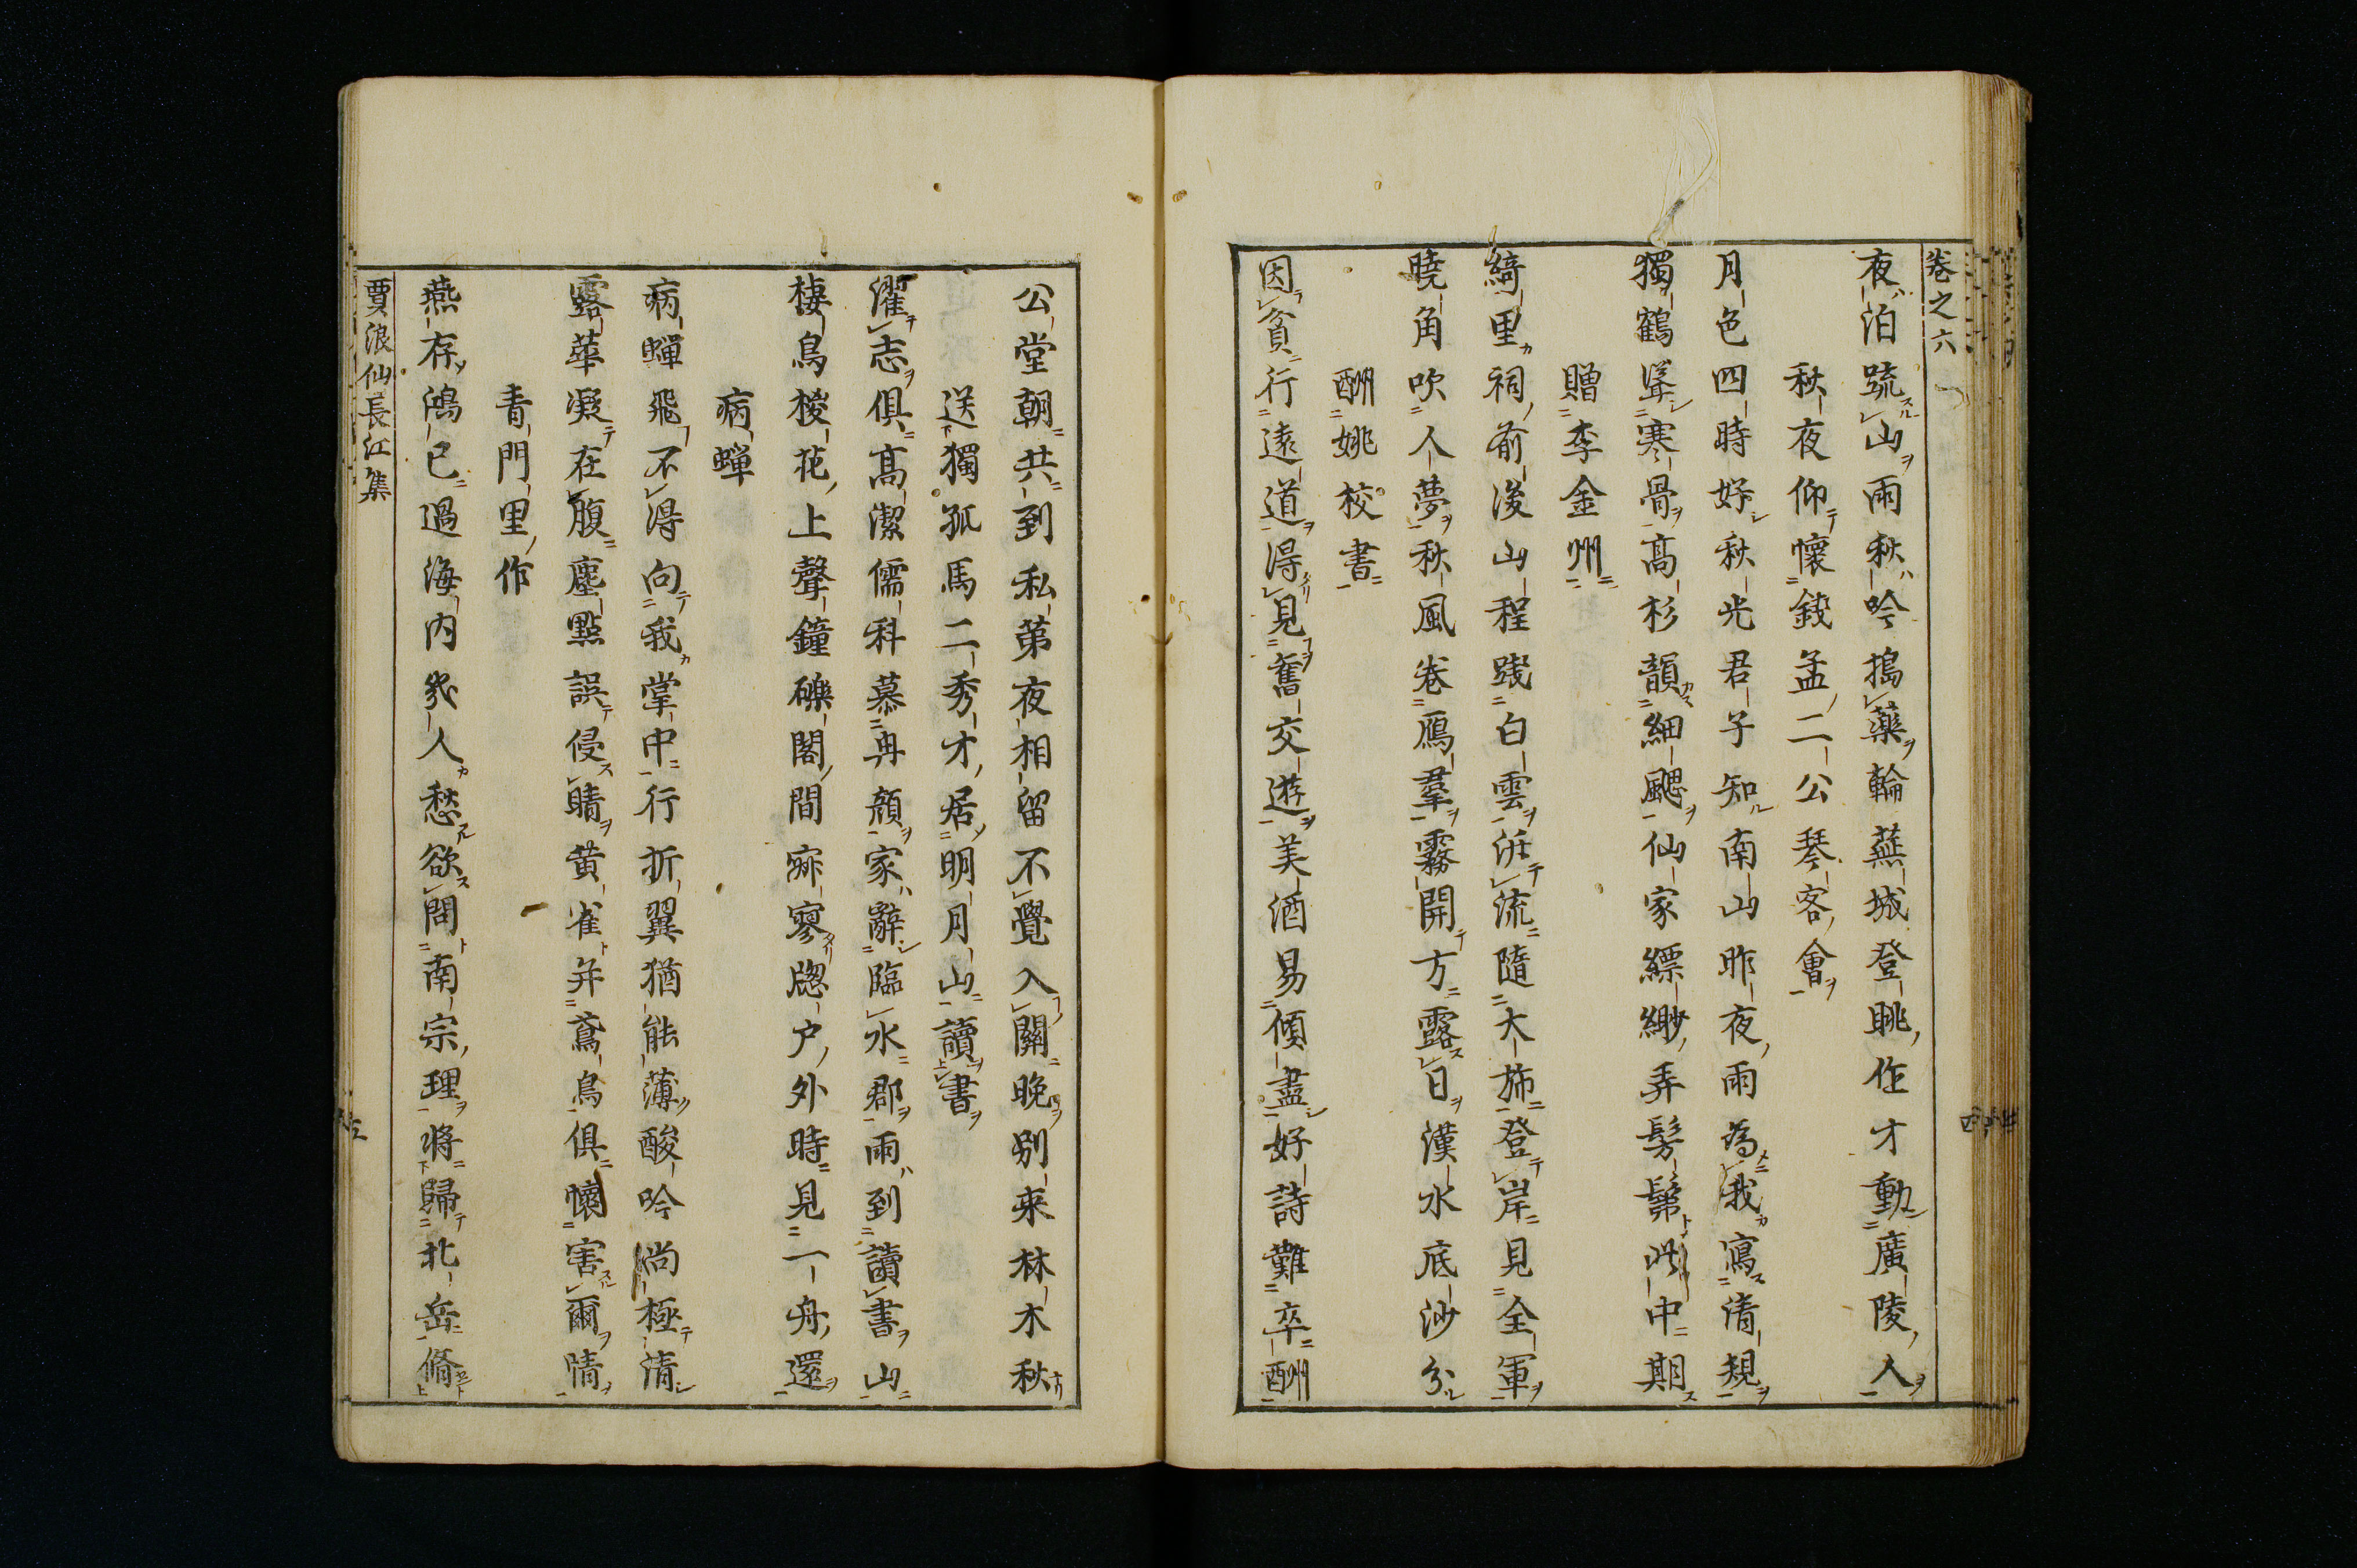 卷之六
夜泊踈山雨秋吟搗藥輪蕪城登眺作才動廣陵人
秋夜仰懷錢孟二公琴客會
月色四時好秋光君子知南山昨夜雨為我寫清規
獨鶴聳寒骨高杉韻細颸仙家縹緲弄髣髴此中期
贈李金州
綺里祠前後山程踐白雲泝流隨大斾登岸見全軍
曉角吹人夢秋風卷鴈羣霧開方露日漢水底沙分
酬姚校書
因貧行遠道得見舊交遊美酒易傾盡好詩難卒酬
公堂朝共到私第夜相留不覺入關晚別来林木秋
送獨孤馬二秀才居明月山讀書
濯志俱高潔儒科慕冉顔家辭臨水郡雨到讀書山
棲鳥椶花上聲鐘礫閣間寂寥牕户外時見一舟還
病蟬
病蟬飛不得向我掌中行折翼猶能薄酸吟尚極清
露華凝在腹塵點誤侵睛黄雀并鳶鳥俱懷害爾情
青門里作
燕存鴻已過海内幾人愁欲問南宗理將歸北岳脩
賈浪仙長江集